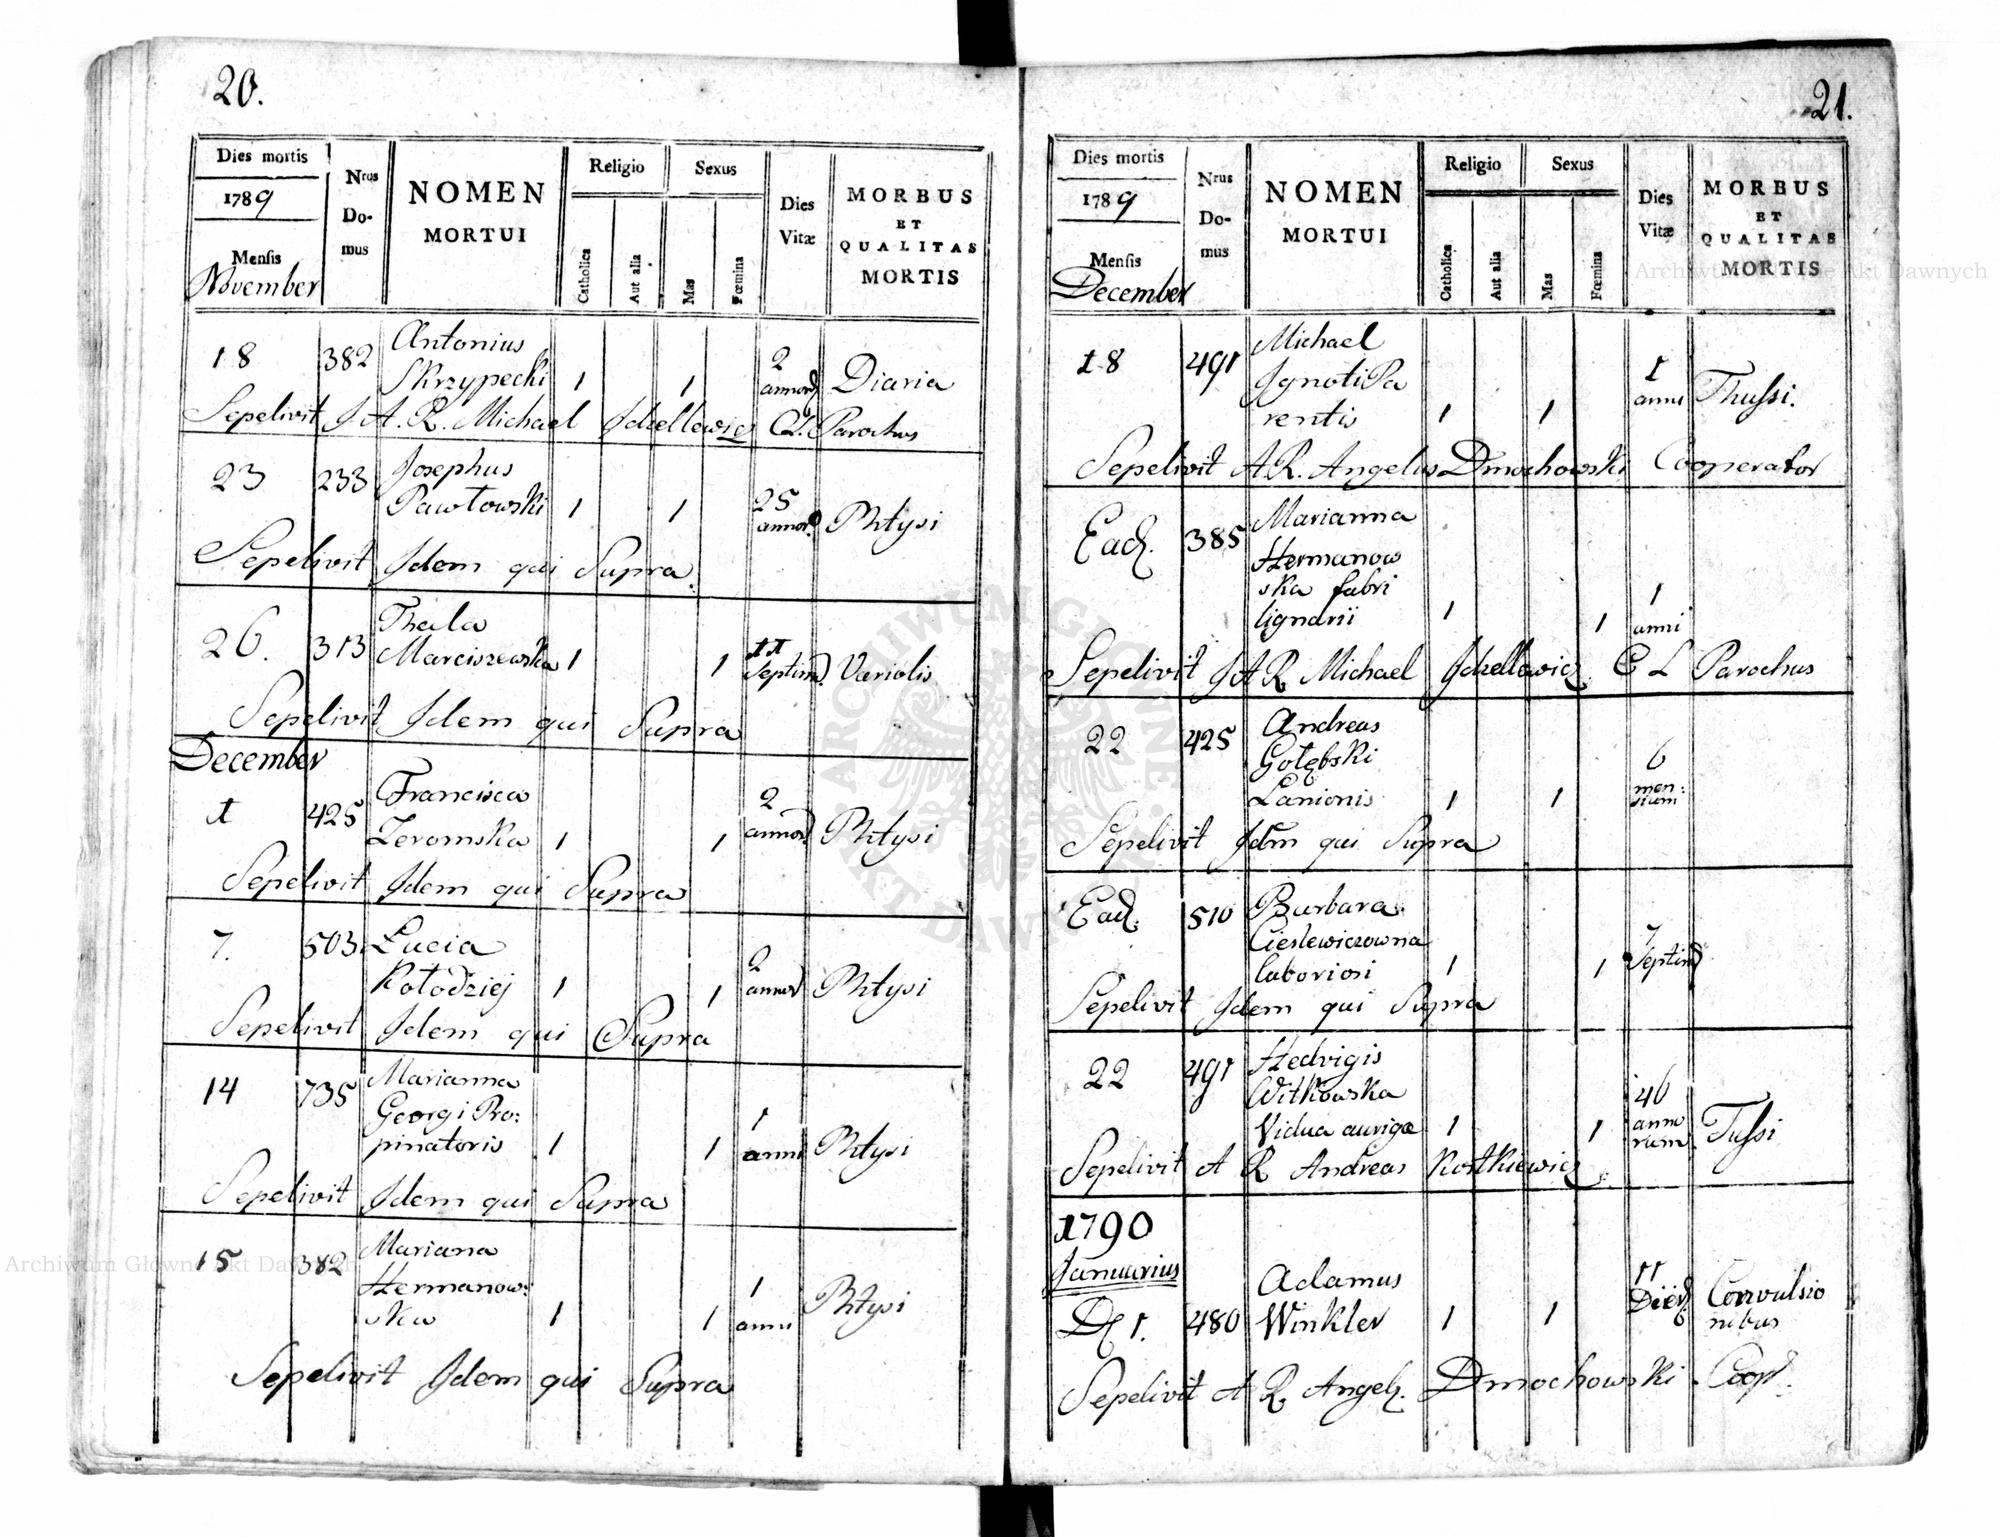 20.
Dies mortis
1789
Mensis
November
Nrus Do- mus
NOMEN
MORTUI
Religio
Catholica
Aut alia
Sexus
Mas
Fœmina
Dies Vitæ
MORBUS
ET
QUALITAS
MORTIS
Antonius
18 382 Skrzypecki 1 1 2 annor. Diaria
Sepelivit J A. R. Michael Idzellewicz C. L. Parochus
Josephus
23 233 Pawłowski 1 1 25 annor. Phtysi
Sepelivit Idem qui Supra.
Thecla
26. 313 Marciszewska 1 1 11 Septim. Variolis
Sepelivit Idem qui Supra
December
Francisca
1 425 Zeromska 1 1 2 annor. Phtysi
Sepelivit Idem qui Supra
7. 503 Lucia
Kołodziej 1 1 2 annor Phtysi
Sepelivit Idem qui Supra
14 735 Marianna
Georgi Pro:
pinatoris 1 1 1 anni Phtysi
Sepelivit Idem qui Supra
15 382 Mariana
Hermanow:
ska 1 1 1 anni Phtysi
Sepelivit Idem qui Supra
21.
Dies mortis
1789
Mensis
December
Nrus Do- mus
NOMEN
MORTUI
Religio
Catholica
Aut alia
Sexus
Mas
Fœmina
Dies Vitæ
MORBUS
ET
QUALITAS
MORTIS
18 491 Michael
Ignoti Pa
rentis 1 1 1 anni Thussi.
Sepelivit A R. Angelus Dmochowski Cooperator
Ead. 385 Marianna
Hermanow
ska fabri
lignarii 1 1 1 anni
Sepelivit J A R Michael Idzellewicz C L Parochus
22 425 Andreas
Gołębski
Lanionis 1 1 6 men: sium
Sepelivit Idm qui Supra
Ead. 510 Barbara
Cieslewiczowna
laboriosi 1 1 7 Septim
Sepelivit Idem qui Supra
22 491 Hedvigis
Witkowska
Vidua aurigæ 1 1 46 anno rum Tussi
Sepelivit A R Andreas Kostkiewicz
1790
Januarius
Adamus
D. 1. 480 Winkler 1 1 11 Dier. Convulsio
nibus
Sepelivit A R Angel. Dmochowski Coop.
ARCHIWUM GŁÓWNE AKT DAWNYCH
Archiwum Główne Akt Dawnych
Archiwum Główne Akt Dawnych